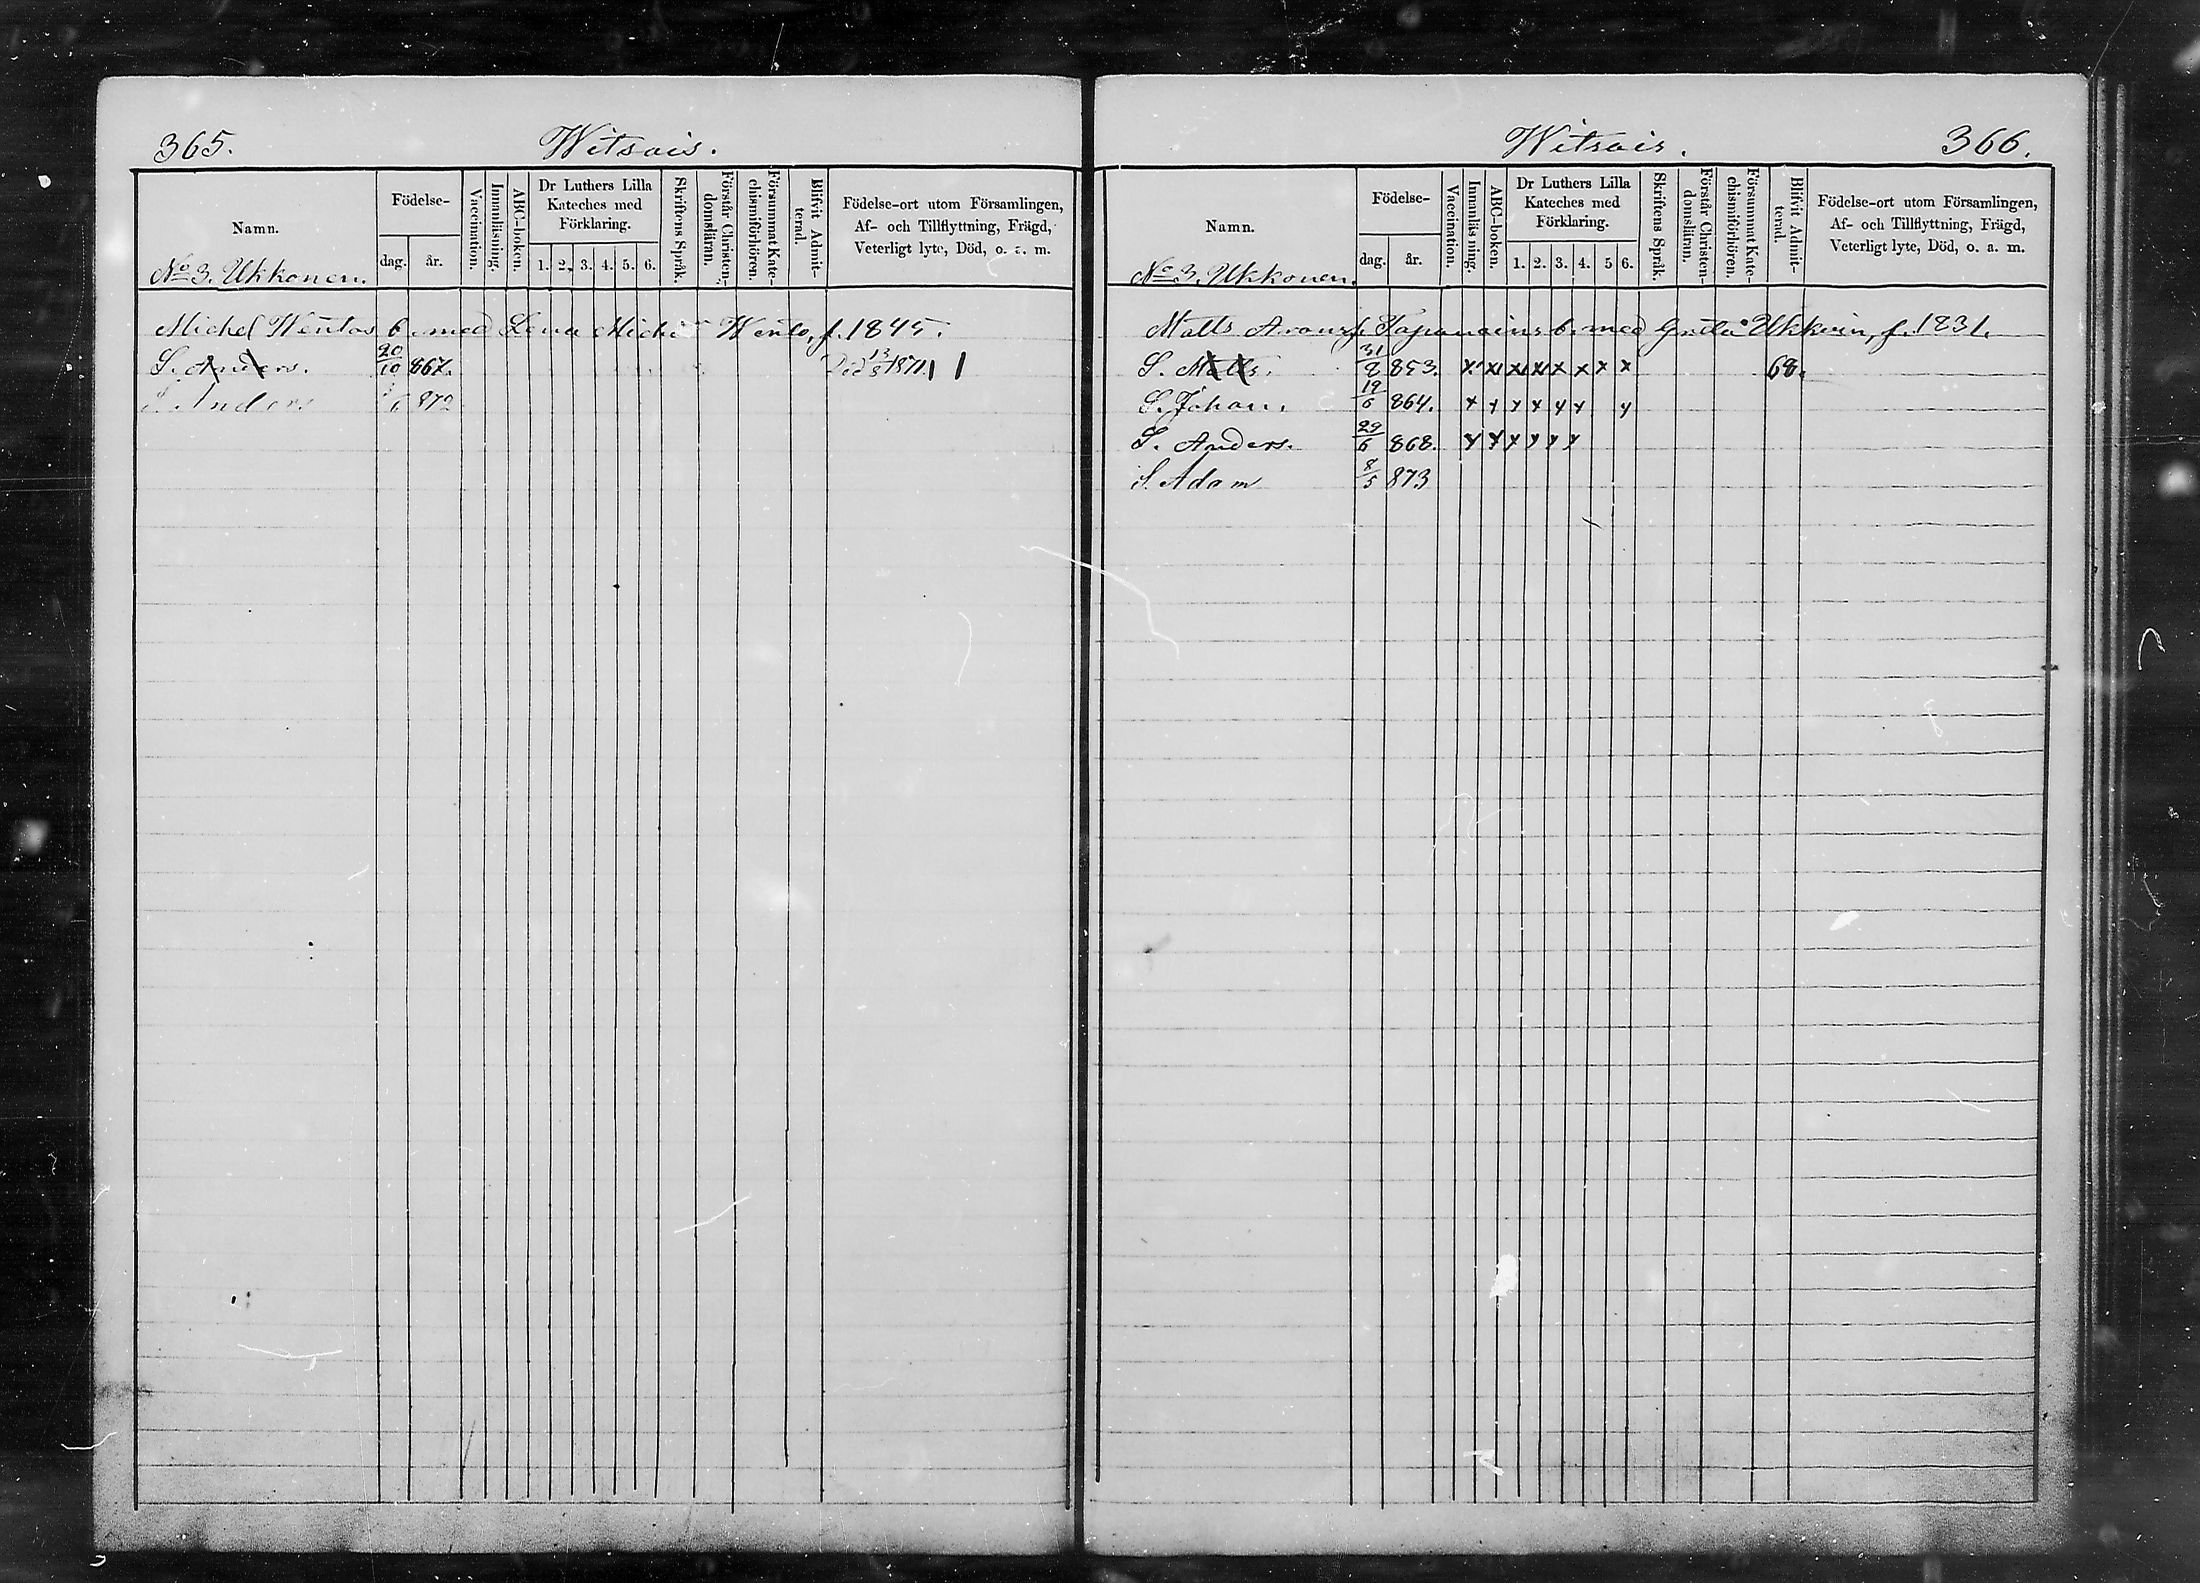 365. Witsais.
Namn.
Födelse-
dag. år.
Vaccination.
Innanläsning.
ABC-boken.
Dr Luthers Lilla
Kateches med
Förklaring.
1. 2. 3. 4. 5. 6.
Skriftens Språk.
Förstår Christen-
domsläran.
Försummat Kate-
chismiförhören.
Blifvit Admit-
terad.
Födelse-ort utom Församlingen,
Af- och Tillflyttning, Frägd,
Veterligt lyte, Död, o. a. m.
No 3. Ukkonen.
Michel Wentos b. med Lena Wento, f. 1845.
S. Anders. 20/10 867. Död 1871
S. Anders 6 872
Witsais. 366.
Namn.
Födelse-
dag. år.
Vaccination.
Innanläsning.
ABC-boken.
Dr Luthers Lilla
Kateches med
Förklaring.
1. 2. 3. 4. 5 6.
Skriftens Språk.
Förstår Christen-
domsläran.
Försummat Kate-
chismiförhören.
Blifvit Admit-
terad.
Födelse-ort utom Församlingen,
Af- och Tillflyttning, Frägd,
Veterligt lyte, Död, o. a. m.
No 3. Ukkonen.
Matts b. med Ukkoin, f. 1831.
S. Matts. 31/8 853. x x x x x x x x 68.
S. Johan. 19/6 864. x x x x x x x
S. Anders. 29/6 868. x x x x x x
S. Adam 8/5 873